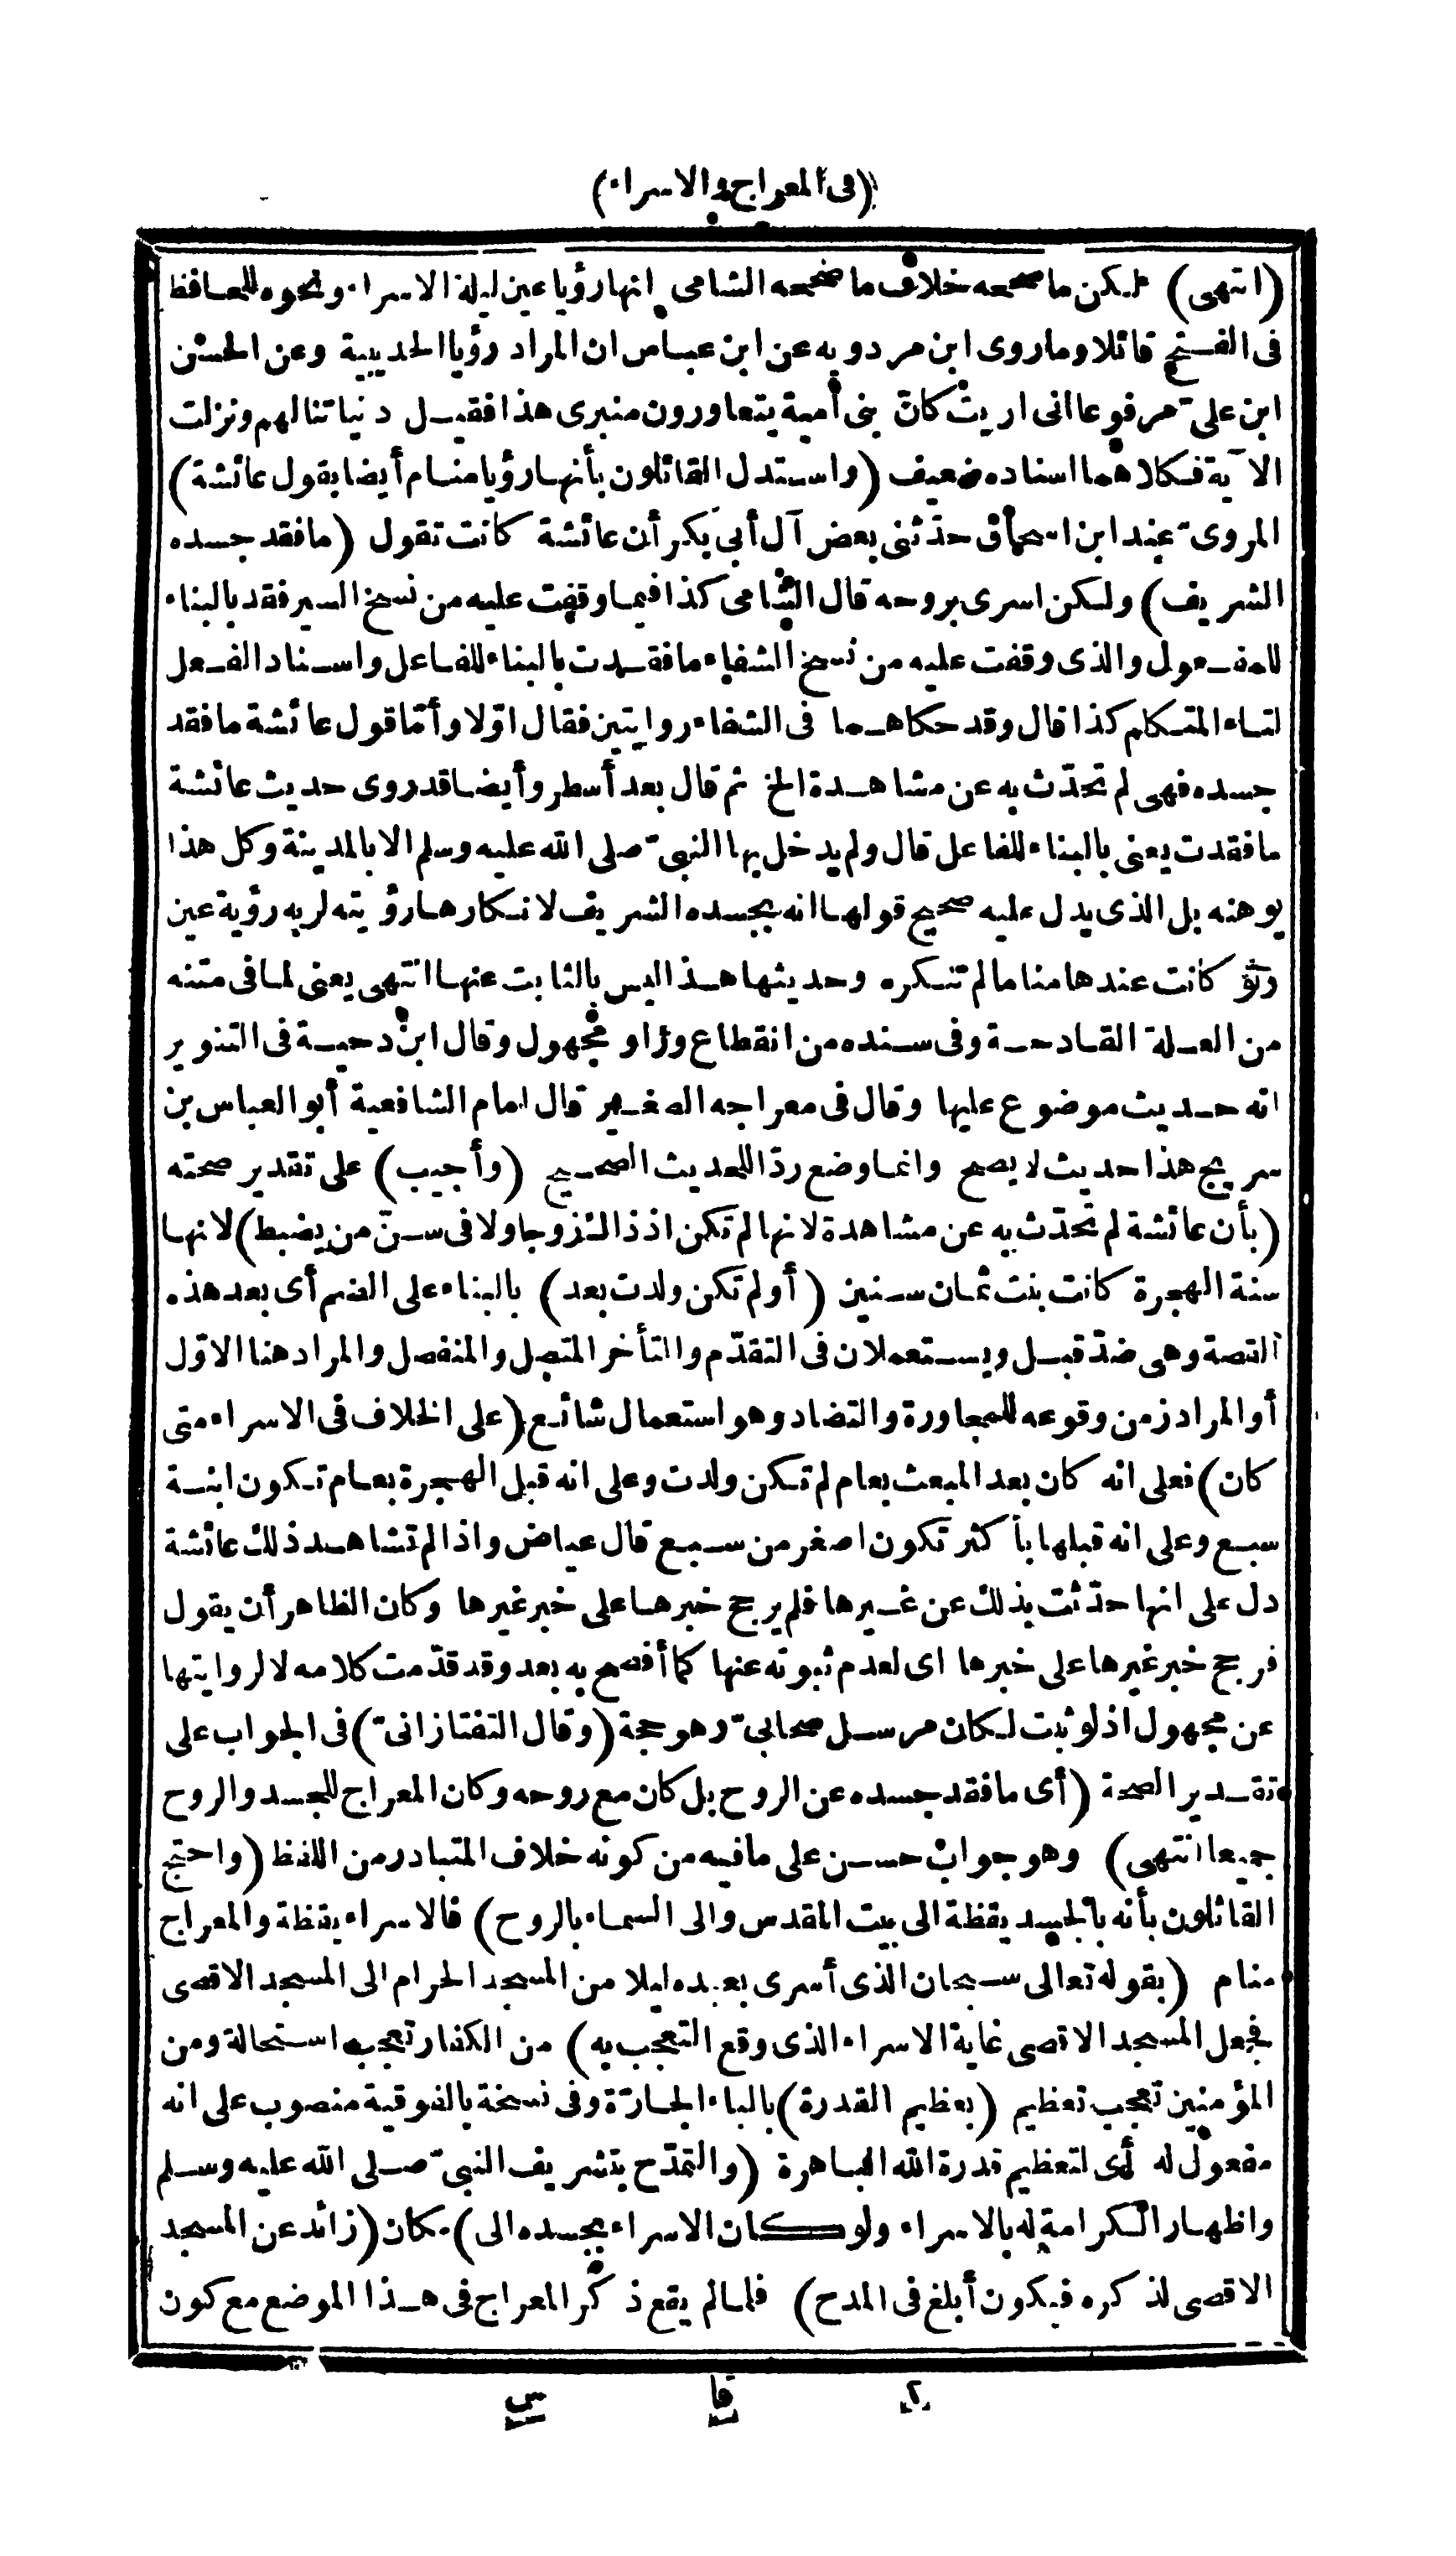 (فى المعراج والاسراء)
(انتهى) لكن ما صححه خلاف ما صححه الشامى انها رؤيا عين ليلة الاسراء ونحوه للحافظ
فى الفتح قائلا وما روى ابن مردويه عن ابن عباس ان المراد رؤيا الحديبية وعن الحسن
ابن على مرفوعا انى اريت كان بنى أمية يتعاورون منبرى هذا فقيل دنيا تنالهم ونزلت
الآية فكلاهما اسناده ضعيف (واستدل القائلون بأنها رؤيا منام أيضا بقول عائشة)
المروىّ عند ابن اسحاق حدّثنى بعض آل أبى بكر أن عائشة كانت تقول (ما فقد جسده
الشريف) ولكن اسرى بروحه قال الشامى كذا فيما وقفت عليه من نسخ السير فقد بالبناء
للمفعول والذى وقفت عليه من نسخ الشفاء ما فقدت بالبناء للفاعل واسناد الفعل
لتاء المتكلم كذا قال وقد حكاهما فى الشفاء روايتين فقال اوّلا وأمّا قول عائشة ما فقد
جسده فهى لم تحدّث به عن مشاهدة الخ ثم قال بعد أسطر وأيضا قد روى حديث عائشة
ما فقدت يعنى بالبناء للفاعل قال ولم يدخل بها النبىّ صلى الله عليه وسلم الا بالمدينة وكل هذا
يوهنه بل الذى يدل عليه صحيح قولها انه بجسده الشريف لانكارها رؤيته لربه رؤية عين
ولو كانت عندها مناما لم تنكره وحديثها هذا ليس بالثابت عنها انتهى يعنى لما فى متنه
من العلة القادحة وفى سنده من انقطاع وراو مجهول وقال ابن دحية فى التنوير
انه حديث موضوع عليها وقال فى معراجه الصغير قال امام الشافعية أبو العباس بن
سريج هذا حديث لا يصح وانما وضع ردّا للحديث الصحيح (وأجيب) على تقدير صحته
(بأن عائشة لم تحدّث به عن مشاهدة لانها لم تكن اذ ذاك زوجا ولا فى سنّ من يضبط) لانها
سنة الهجرة كانت بنت ثمان سنين (أو لم تكن ولدت بعد) بالبناء على الضم أى بعد هذه
القصة وهى ضدّ قبل ويستعملان فى التقدّم والتأخر المتصل والمنفصل والمراد هنا الاوّل
أو المراد زمن وقوعه للمجاورة والتضاد وهو استعمال شائع (على الخلاف فى الاسراء متى
كان) فعلى انه كان بعد المبعث بعام لم تكن ولدت وعلى انه قبل الهجرة بعام تكون ابنة
سبع وعلى انه قبلها بأكثر تكون اصغر من سبع قال عياض واذا لم تشاهد ذلك عائشة
دل على انها حدّثت بذلك عن غيرها فلم يرجح خبرها على خبر غيرها وكان الظاهر أن يقول
فرجح خبر غيرها على خبرها اى لعدم ثبوته عنها كما أفصح به بعد وقد قدّمت كلامه لا لروايتها
عن مجهول اذ لو ثبت لكان مرسل صحابىّ وهو حجة (وقال التفتازانىّ) فى الجواب على
تقدير الصحة (أى ما فقد جسده عن الروح بل كان مع روحه وكان المعراج للجسد والروح
جميعا انتهى) وهو جواب حسن على ما فيه من كونه خلاف المتبادر من اللفظ (واحتج
القائلون بأنه بالجسد يقظة الى بيت المقدس والى السماء بالروح) فالاسراء يقظة والمعراج
منام (بقوله تعالى سبحان الذى أسرى بعبده ليلا من المسجد الحرام الى المسجد الاقصى
فجعل المسجد الاقصى غاية الاسراء الذى وقع التعجب به) من الكفار تعجب استحالة ومن
المؤمنين تعجب تعظيم (بعظيم القدرة) بالباء الجارّة وفى نسخة بالفوقية منصوب على انه
مفعول له أى لتعظيم قدرة الله الباهرة (والتمدّح بتشريف النبىّ صلى الله عليه وسلم
واظهار الكرامة له بالاسراء ولو كان الاسراء بجسده الى) مكان (زائد عن المسجد
الاقصى لذكره فيكون أبلغ فى المدح) فلما لم يقع ذكر المعراج فى هذا الموضع مع كون
٢ قا س